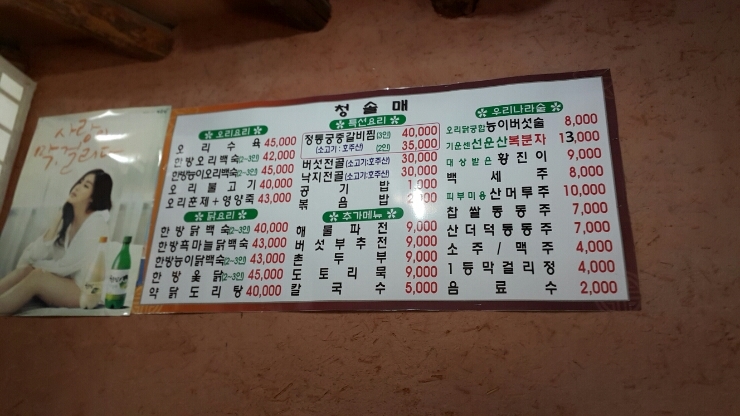 사랑이
막걸리다
청솔매
오리요리
오리수육 45,000
한방오리백숙(2~3인) 42,000
한방능이오리백숙(2~3인) 45,000
오리불고기 40,000
오리훈제+영양죽 43,000
닭요리
한방닭백숙(2~3인) 40,000
한방흑마늘닭백숙 43,000
한방능이닭백숙(2~3인) 43,000
한방옻닭(2~3인) 45,000
약닭도리탕 40,000
특선요리
정통궁중갈비찜(3인) 40,000
(소고기:호주산) (2인) 35,000
버섯전골(소고기:호주산) 30,000
낙지전골(소고기:호주산) 30,000
공기밥 1,000
볶음밥 2,000
추가메뉴
해물파전 9,000
버섯부추전 9,000
촌두부 9,000
도토리묵 9,000
칼국수 5,000
우리나라술
오리닭궁합능이버섯술 8,000
기운센선운산복분자 13,000
대상받은황진이 9,000
백세주 8,000
피부미용산머루주 10,000
찹쌀동동주 7,000
산더덕동동주 7,000
소주/맥주 4,000
1등막걸리정 4,000
음료수 2,000